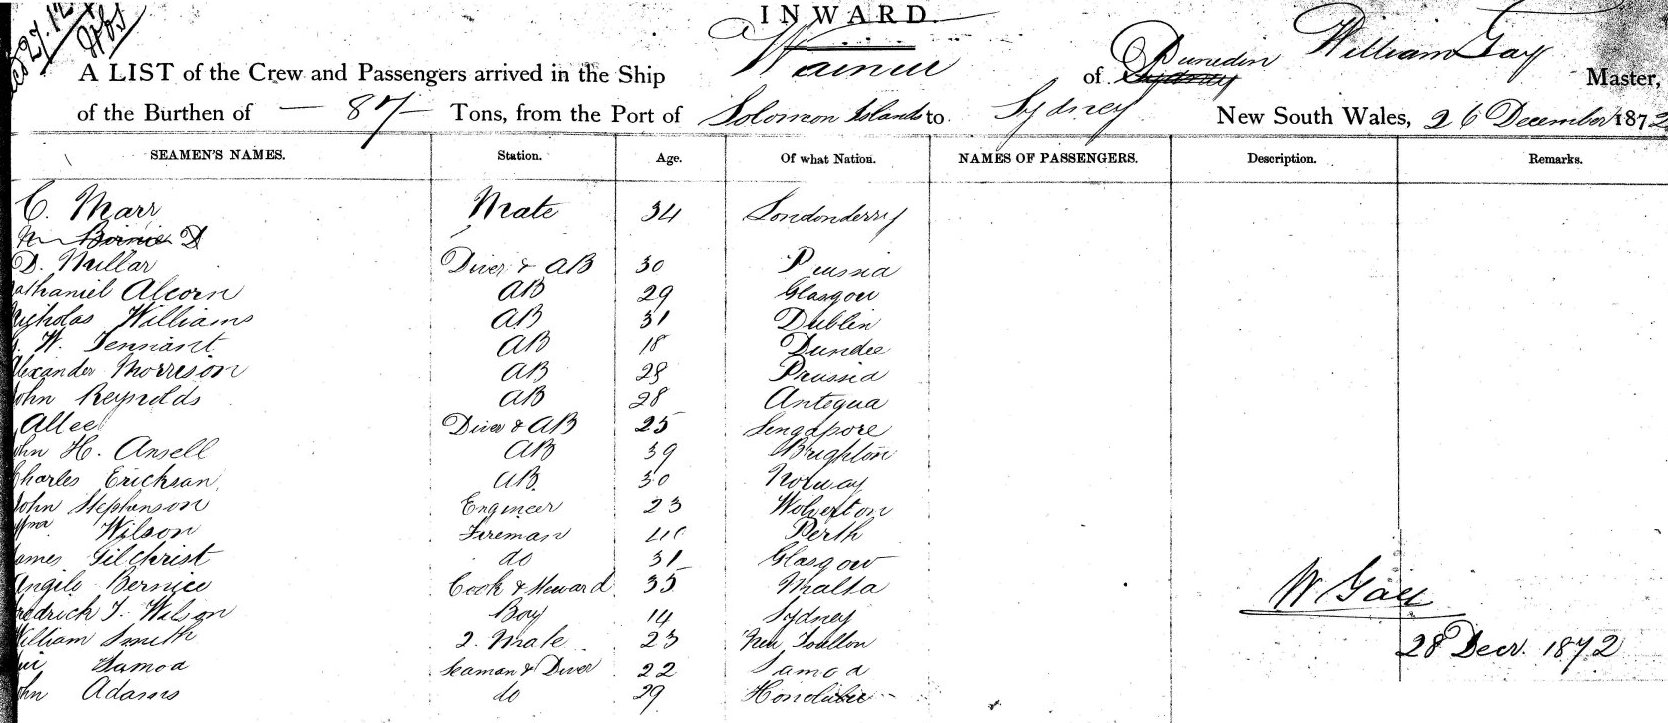 INWARD.
27.12
A LIST of the Crew and Passengers arrived in the Ship Wainui of Dunedin Sydney William Gay Master,
of the Burthen of — 87 — Tons, from the Port of Solomon Islands to Sydney New South Wales, 26 December 1872
SEAMEN'S NAMES. Station. Age. Of what Nation. NAMES OF PASSENGERS. Description. Remarks.
C. Marr Mate 34 Londonderry
Bernie D
D. Millar Diver & AB 30 Prussia
athaniel Alcorn AB 29 Glasgow
icholas Williams AB 31 Dublin
W. Tennant AB 18 Dundee
lexander Morrison AB 28 Prussia
ohn Reynolds AB 28 Antegua
Allee Diver & AB 25 Sengapore
ohn H. Ansell AB 39 Brighton
Charles Ericksan AB 30 Norway
John Stephenson Engineer 23 Wolverton
Wilson Fireman Perth
ames Gilchrist do 31 Glasgow
Angilo Bernice Cook & Steward 35 Malta
redrick J. Wilson Boy 14 Sydney
William Smith 2. Mate 23
Samoa Seaman & Diver 22 Samoa
ohn Adams do 29 Honolulu
W Gay
28 Decr. 1872